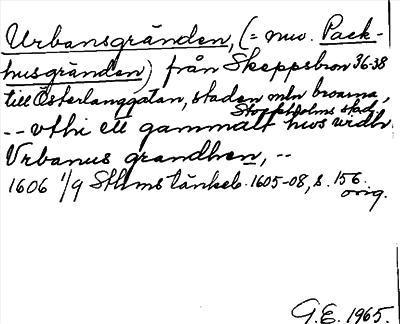 Urbansgränden, (= nuv. Pack-
husgränden) från Skeppsbron 36-38
till Österlånggatan, staden mln broarna,
Stockholms stad
-- vthi ett gammalt hws widh
Vrbanus grandhen, --
1606 1/9 Sthms tänkeb. 1605-08, s. 156.
orig.
G.E. 1965.